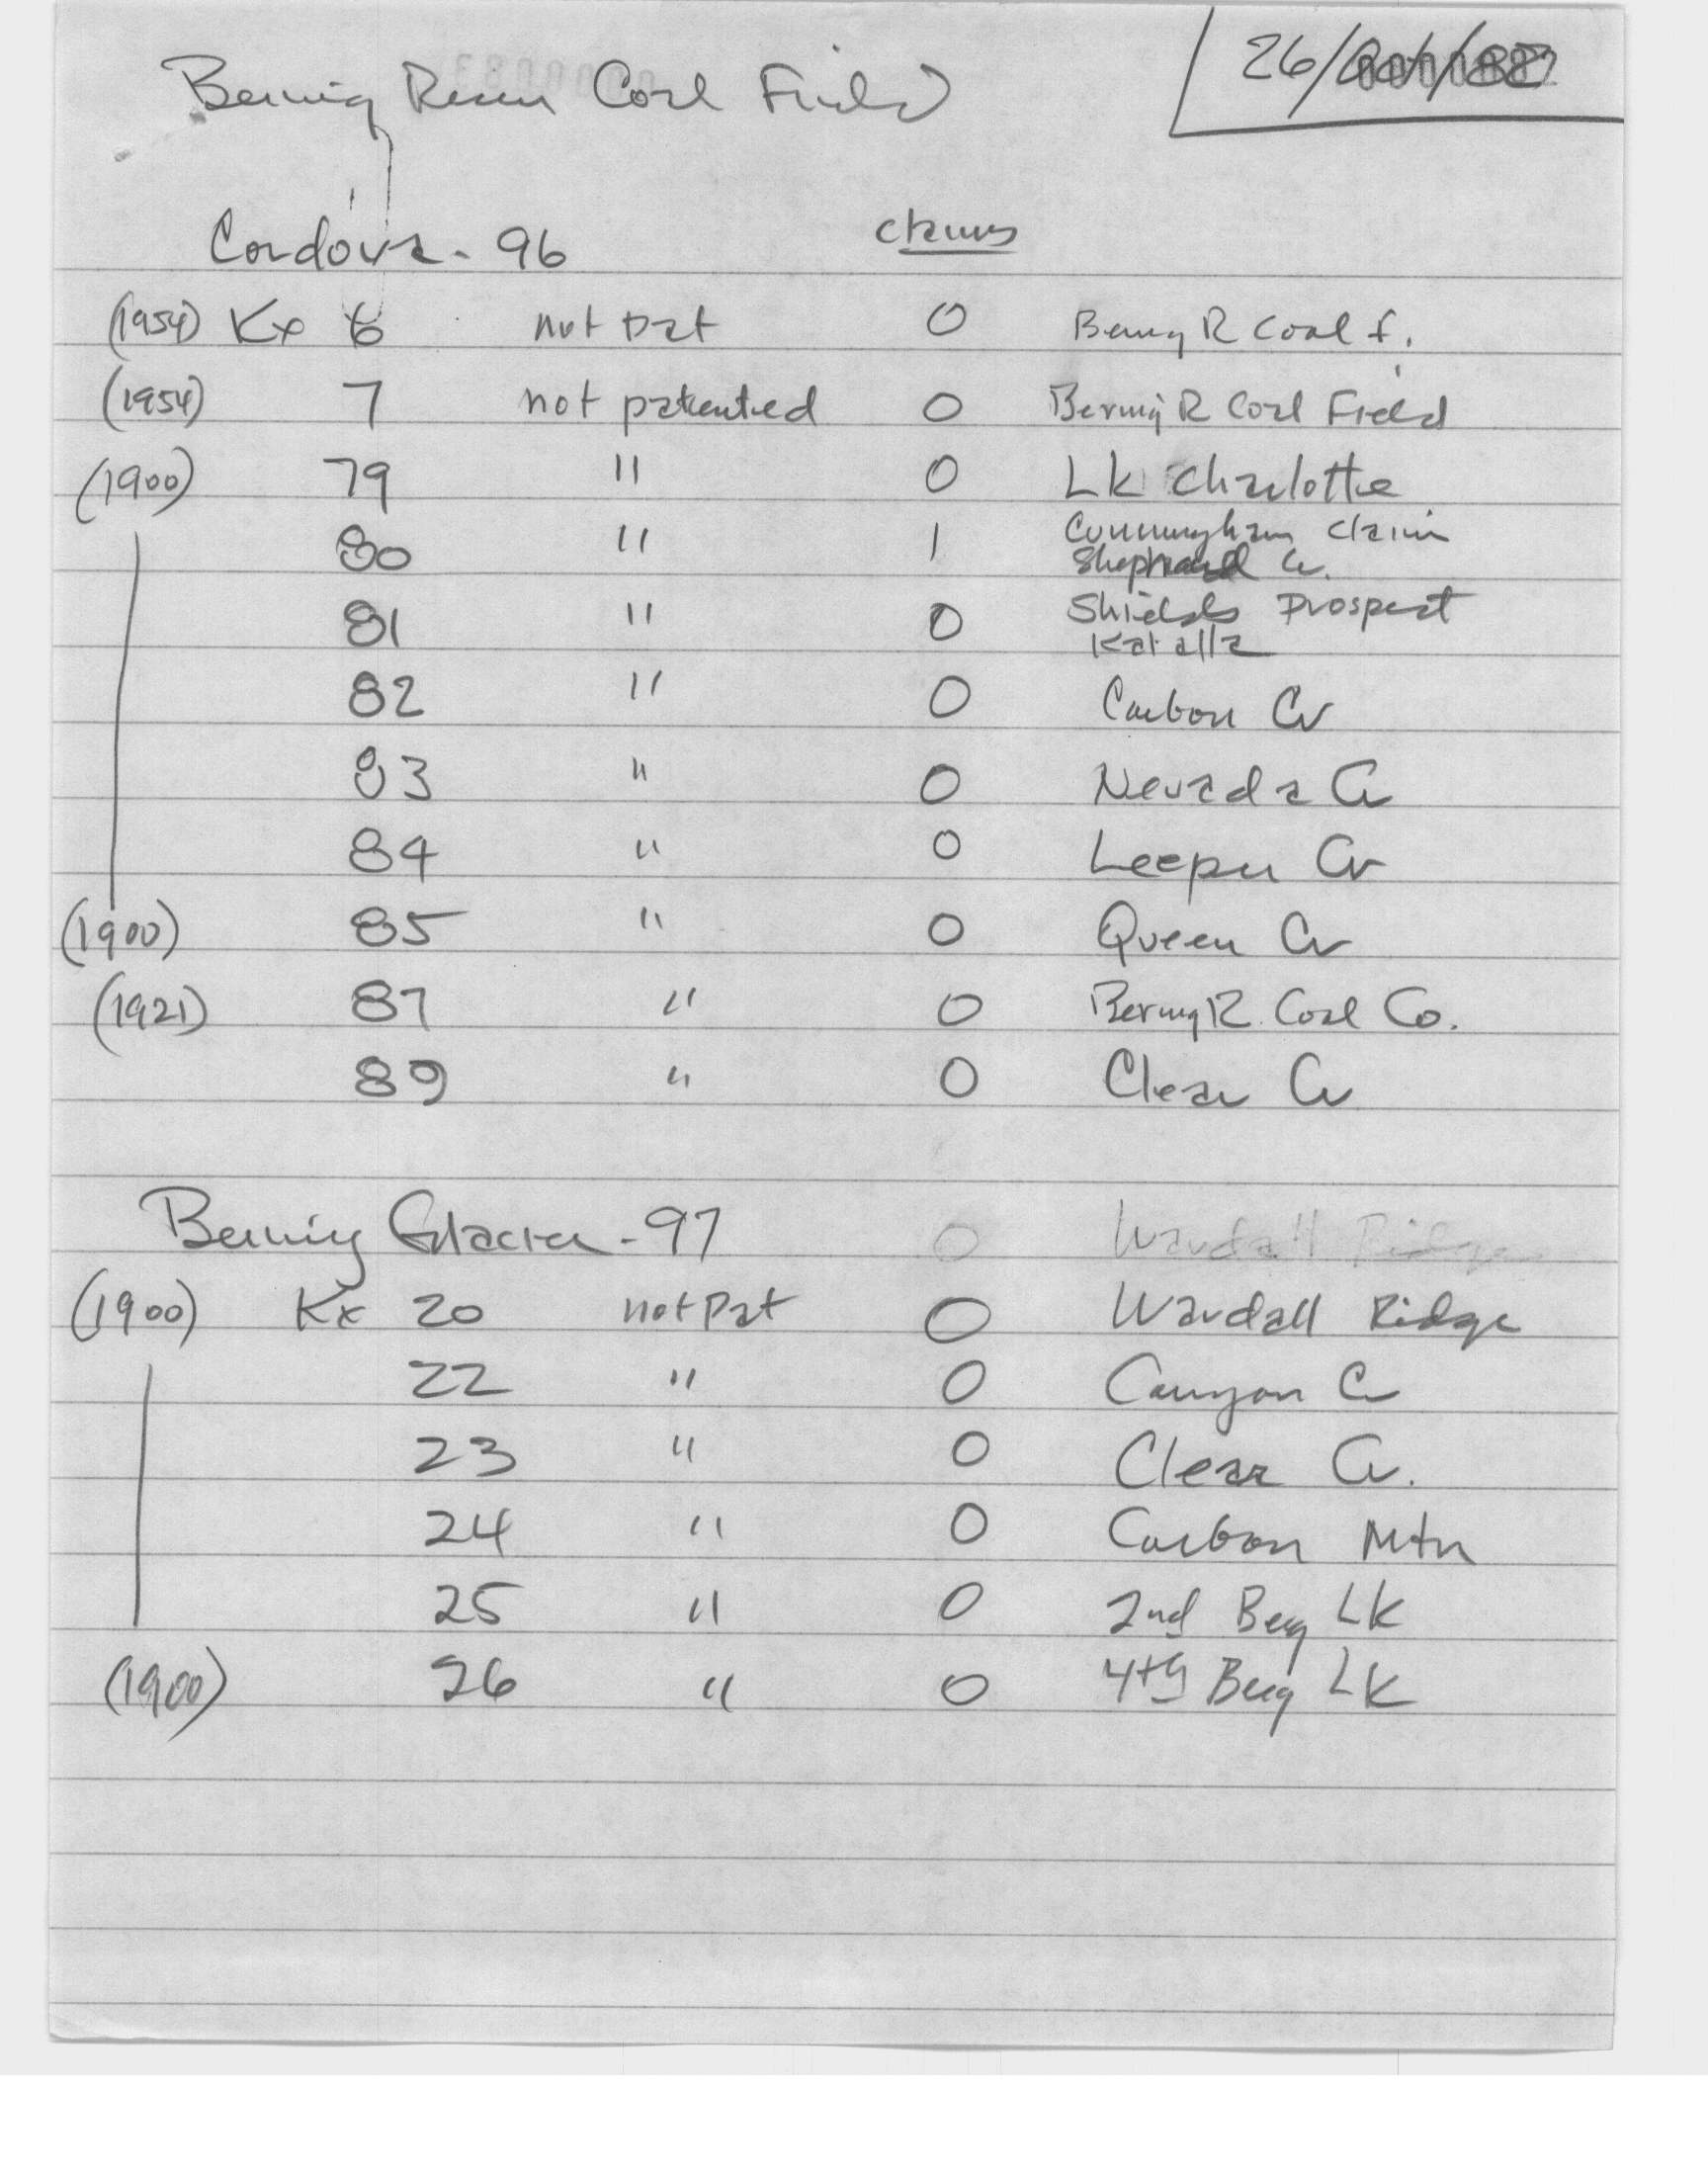 Bering River Coal Field
26/Oct/82
Cordova - 96 claims
(1954) Kx 6 not pat 0 Bering R Coal f.
(1954) 7 not patented 0 Bering R Coal Field
(1900) 79 " 0 Lk Charlotte
80 " 1 Cunningham Claim
Shephard Cr.
81 " 0 Shields Prospect
Katalla
82 " 0 Carbon Cr
83 " 0 Nevada Cr
84 " 0 Leeper Cr
(1900) 85 " 0 Queen Cr
(1921) 87 " 0 Bering R. Coal Co.
89 " 0 Clear Cr
Bering Glacier - 97 0 Wardall Ridge
(1900) Kx 20 not Pat 0 Wardall Ridge
22 " 0 Canyon Cr
23 " 0 Clear Cr.
24 " 0 Carbon Mtn
25 " 0 2nd Berg Lk
(1900) 26 " 0 4th Berg Lk